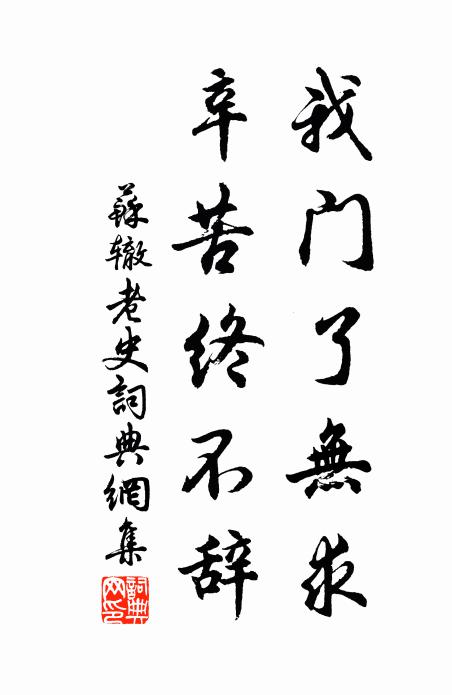 我门了無求
辛苦终不辞
蘇辙老史詞典網集
詞典网印